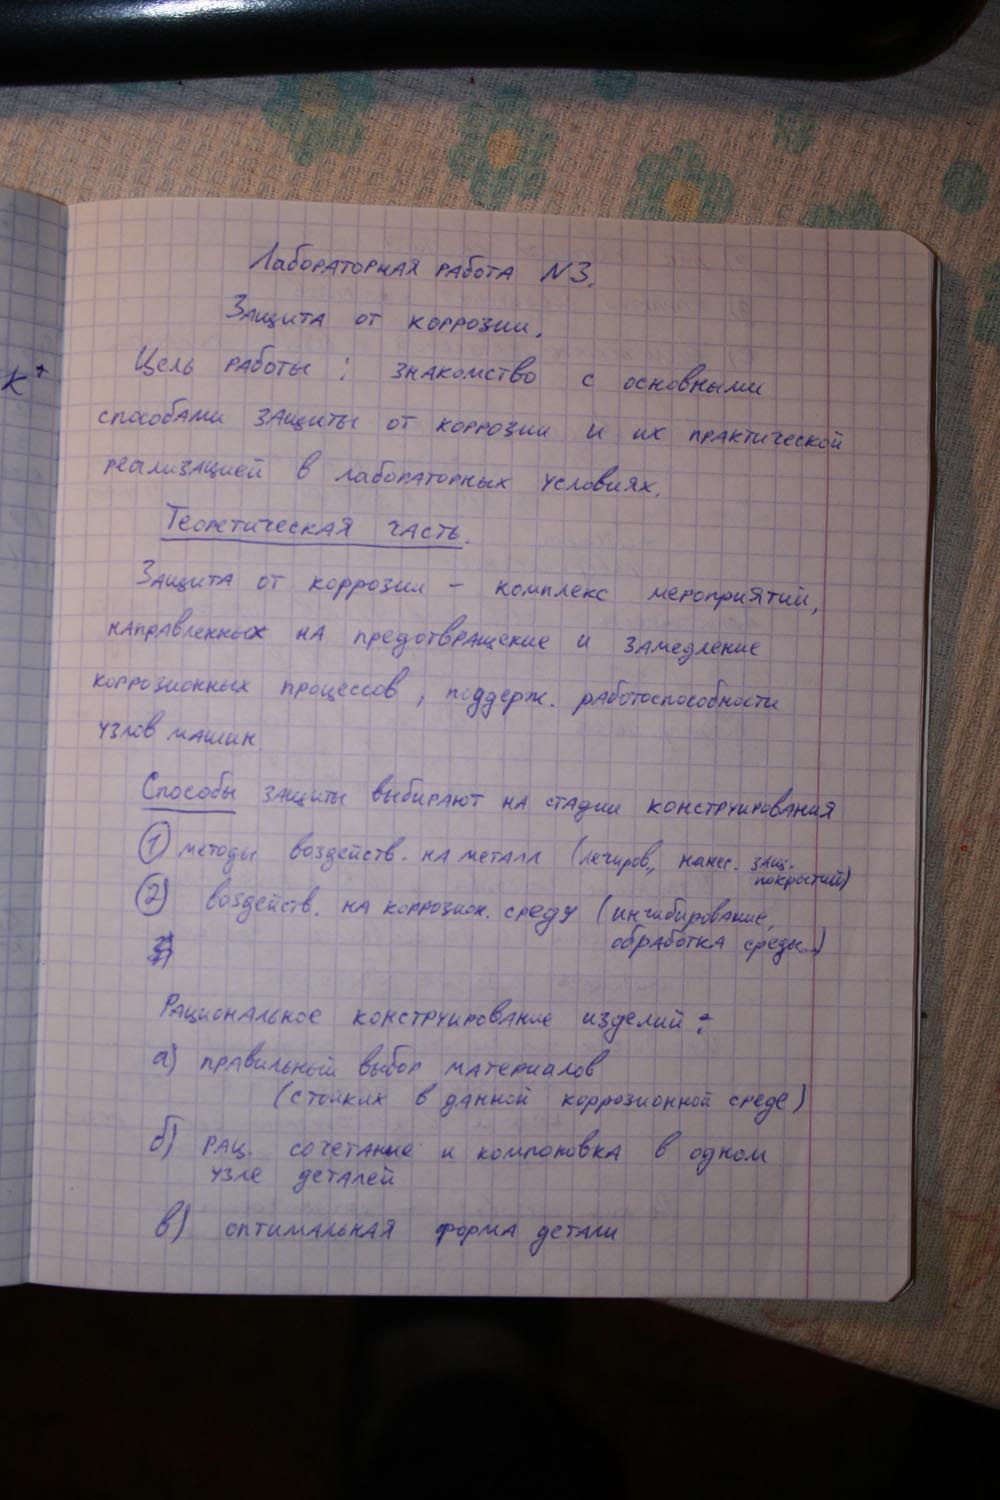 Лабораторная работа N3.
Защита от коррозии.
К+
Цель работы : знакомство с основными
способами защиты от коррозии и их практической
реализацией в лабораторных условиях.
Теоретическая часть.
Защита от коррозии – комплекс мероприятий,
направленных на предотвращение и замедление
коррозионных процессов, поддерж. работоспособности
узлов машин.
Способы защиты выбирают на стадии конструирования
1) методы воздейств. на металл (легиров., нанес. защ.
покрытий)
2) воздейств. на коррозион. среду (ингибирование,
обработка среды..)
Рациональное конструирование изделий :
а) правильный выбор материалов
(стойких в данной коррозионной среде)
б) рац. сочетание и компоновка в одном
узле деталей
в) оптимальная форма детали